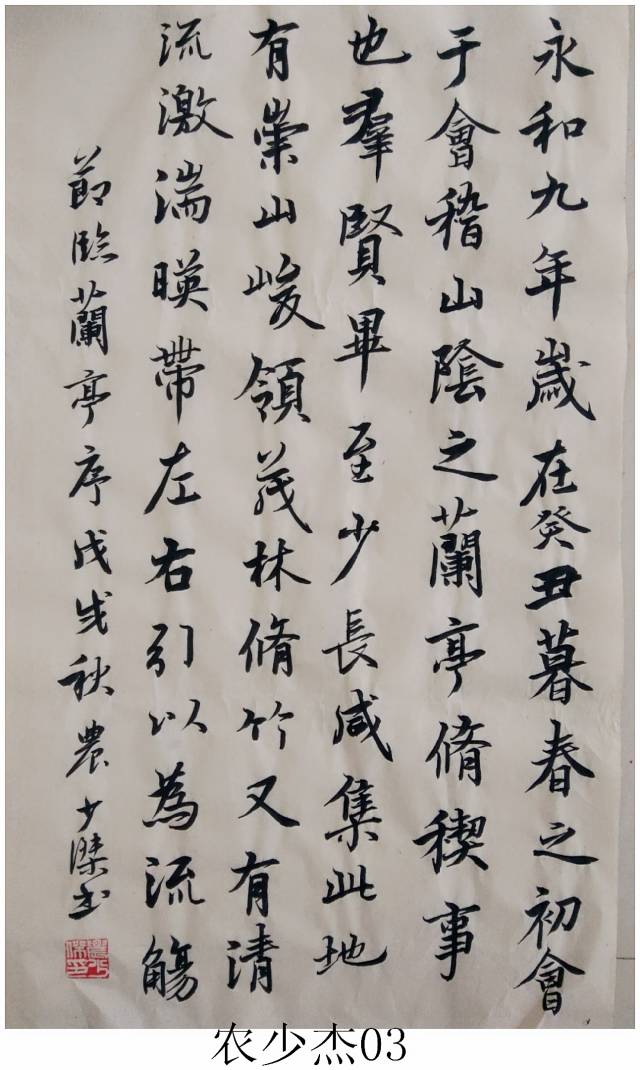 永和九年歲在癸丑暮春之初會
于會稽山陰之蘭亭脩稧事
也羣賢畢至少長咸集此地
有崇山峻領茂林脩竹又有清
流激湍暎帶左右引以為流觴
節臨蘭亭序戊戌秋農少傑书
农少杰03